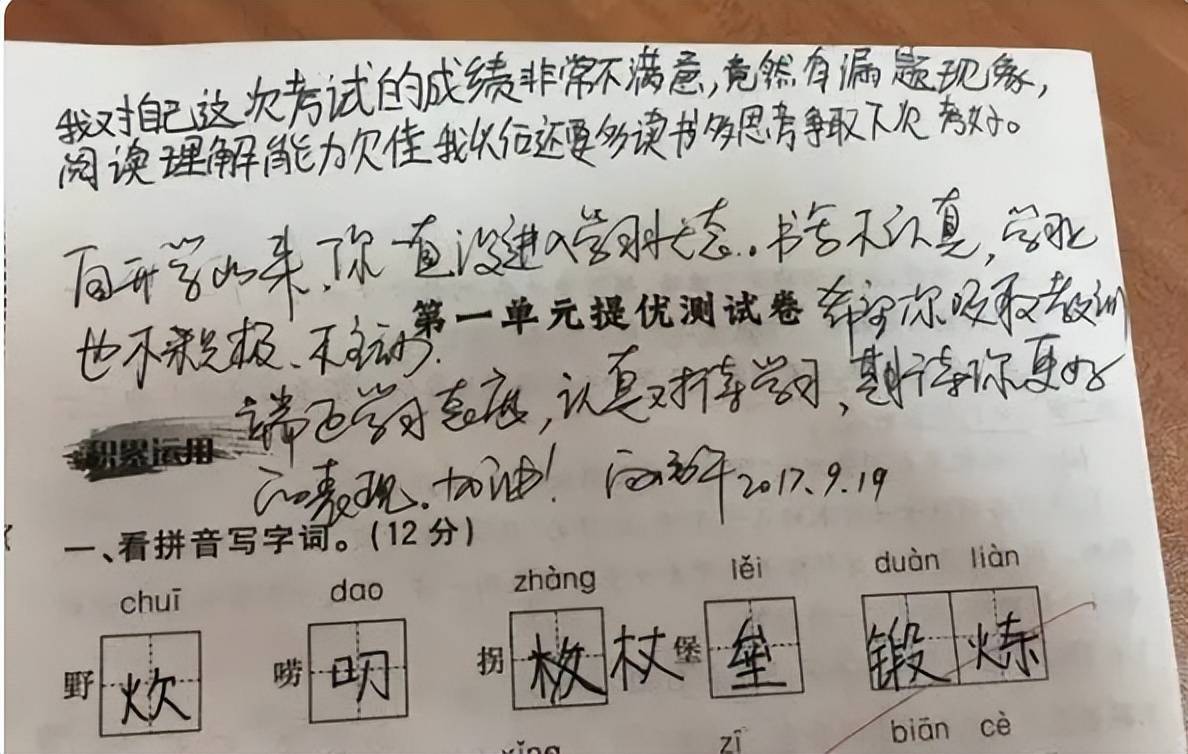 我对自己这次考试的成绩非常不满意,竟然有漏题现象,
阅读理解能力欠佳我以后还要多读书多思考争取下次考好。
自开学以来,你一直没进入学习状态。书写不认真,学习
也不积极、不主动。
第一单元提优测试卷
希望你吸取教训
端正学习态度,认真对待学习,期待你更好
积累运用
的表现。加油!
2017.9.19
一、看拼音写字词。(12分)
chuī dao zhàng lěi duàn liàn
野炊 唠叨 拐杖 堡垒 锻炼
zī biān cè